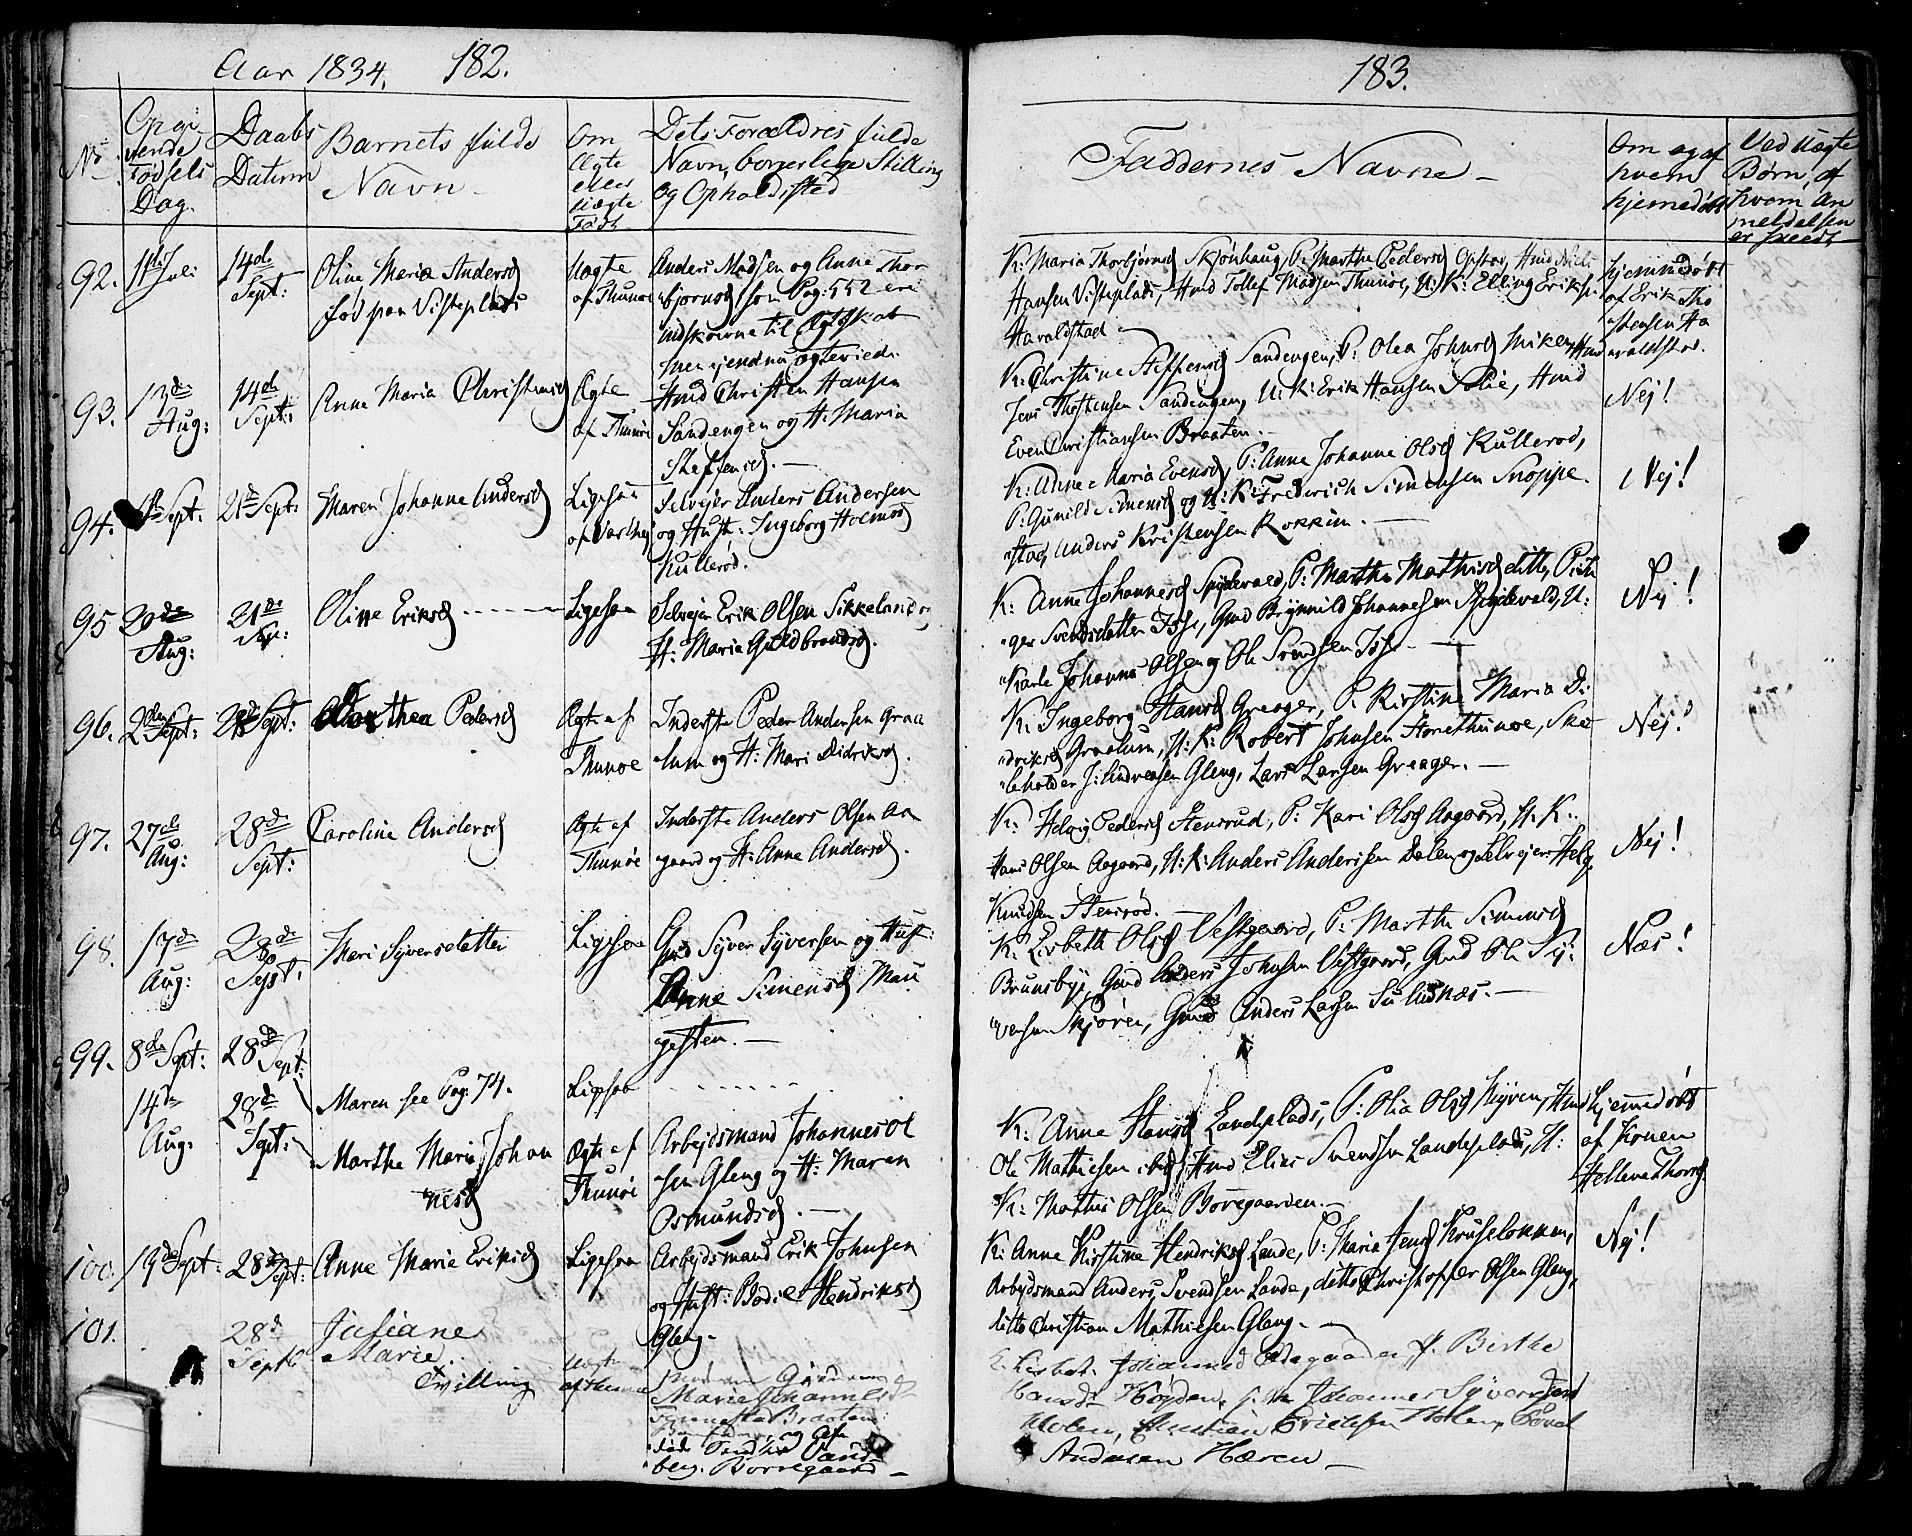 Aar 1834. 182.
No.
Opgivende Fødsels Dag.
Daabs Datum
Barnets fulde Navn
Om Ægte eller Uægte Født
Dets Forældres fulde Navn, borgerlige Stilling og Opholdsted
92. Juli
14de Sept:
Oline Maria Andersd
fød paa Visteplads
Uægte
af Thunøe
Anders Madsen og Anne Thor
bjørnsd som Pag: 552 ere
indskrevne til Ægteskab
men ejendnu ægteviede.
93. 13de Aug:
14de Sept:
Anne Maria Christensd
Ægte
af Thunøe
Hmd Christen Hansen
Sandengen og H: Maria
Steffensd. —
94. Sept:
21de Sept:
Maren Johanne Andersd
Ligesaa
af Varteig
Selvejer Anders Andersen
og Hust: Ingeborg Holmsd
Kullerød.
95 20de Aug:
21de Sep:
Oline Eriksd
Ligesaa
Selvejer Erik Olsen Sikkeland og
H: Maria Guldbrandsd.
96. 2den Sept:
21de Sept:
Dorthea Pedersd
Ægte af
Thunøe
Inderste Peder Andersen Graa
lum og H: Mari Didriksd.
97. 27de Aug:
28de Sept:
Caroline Andersd
Ægte af
Thunøe
Inderste Anders Olsen Aa
gaard og H: Anne Andersd.
98. 17de Aug:
28de Sept:
Mari Syversdatter
Ligesaa
Gmd Syver Syversen og Hust:
Anne Simensd Mau
gesten. —
99. 8de Sept:
28de Sept:
Maren see Pag: 74.
Ligesaa
14de Aug:
28de Sept:
Marthe Maria Johan
nesd
Ægte af
Thunøe
Arbejdsmand Johannes Ol
sen Gleng og H: Maren
Osmundsd. —
100. 19de Sept:
28de Sept:
Anne Marie Eriksd
Ligesaa
Arbejdsmand Erik Johnsen
og Hust: Bodil Hendriksd
Gleng.
101.
28d Septb
Juliane
Marie.
Tvilling
Uægte
Marie Johannesd
Braaten
og
Sand
berg. Borregaard —
183.
Faddernes Navne —
Om og af hvem hjemedøbt
Ved Uægte Børn, af hvem Anmeldelsen er skeedt
K: Maria Thorbjørnsd Skjønhaug P: Marthe Pedersd Opstad, Hmd Niels
Hansen Visteplads, Hmd Tollef Madsen Thunøe, U: K: Elling Eriksen
Haraldstad —
hjemmedøbt
af Erik Tho
stensen Ha
raldstad.
K: Christine Steffensd Sandengen, P: Olea Johnsd Miken, Hmd
Jens Thostensen Sandengen, U: K: Erik Hansen Solie, Hmd
Even Christiansen Braaten. —
Nej!
K: Anne Maria Evensd, P: Anne Johanne Olsd Kullerød,
P: Gunild Simensd og U: K: Frederich Simensen Snoppe
stad, Anders Kristensen Rokken. —
Nej!
K: Anne Johannesd Spydevold, P: Marthe Mathisd ditto, P:
ger Svendsdatter Isse, Gmd Brynnild Johannesen Spydevold, U:
Karle Johannes Olsen og Ole Svendsen Isse. —
Nej!
K: Ingeborg Hansd Greager, P: Kirstine Maria Di
driksd Graalum, U: K: Robert Johnsen Tunøe, Ska
beholder J: Andreasen Gleng, Lars Larsen Greager. —
Nej!
K: Helvig Pedersd Stensrud, P: Kari Olsd Aagaard, U: K:
Hans Olsen Aagaard, U: K: Anders Andersen Dalen og Selvejer Helge
Knudsen Stensrød. —
Nej!
K: Lisbeth Olsd Vestgaard, P: Marthe Simensd
Brunsbye, Gmd Anders Johnsen Vestgaard, Gmd Ole Sy:
versen Skjøren, Gmd Anders Larsen —
Næs!
K: Anne Hansd Landeplads, P: Olia Olsd Kyven, Hmd
Ole Mathiesen ibid, Hmd Elias Svendsen Landeplads, U:
K: Mathis Olsen Borregaarden. —
hjemmedøbt
af Konen
Hellene Thorsd
K: Anne Kirstine Hendriksd Lande, P: Maria Jensd Kruseløkken,
Arbejdsmand Anders Svendsen Lande, ditto Christopher Olsen Gleng,
ditto Christian Mathiesen Gleng. —
Nej!
Lisbet Johannesd f. Birthe
Hansd Høyden, Johannes Syversen
Holen, Christian Erichsen Holen, Povel
Andersen Hæren —